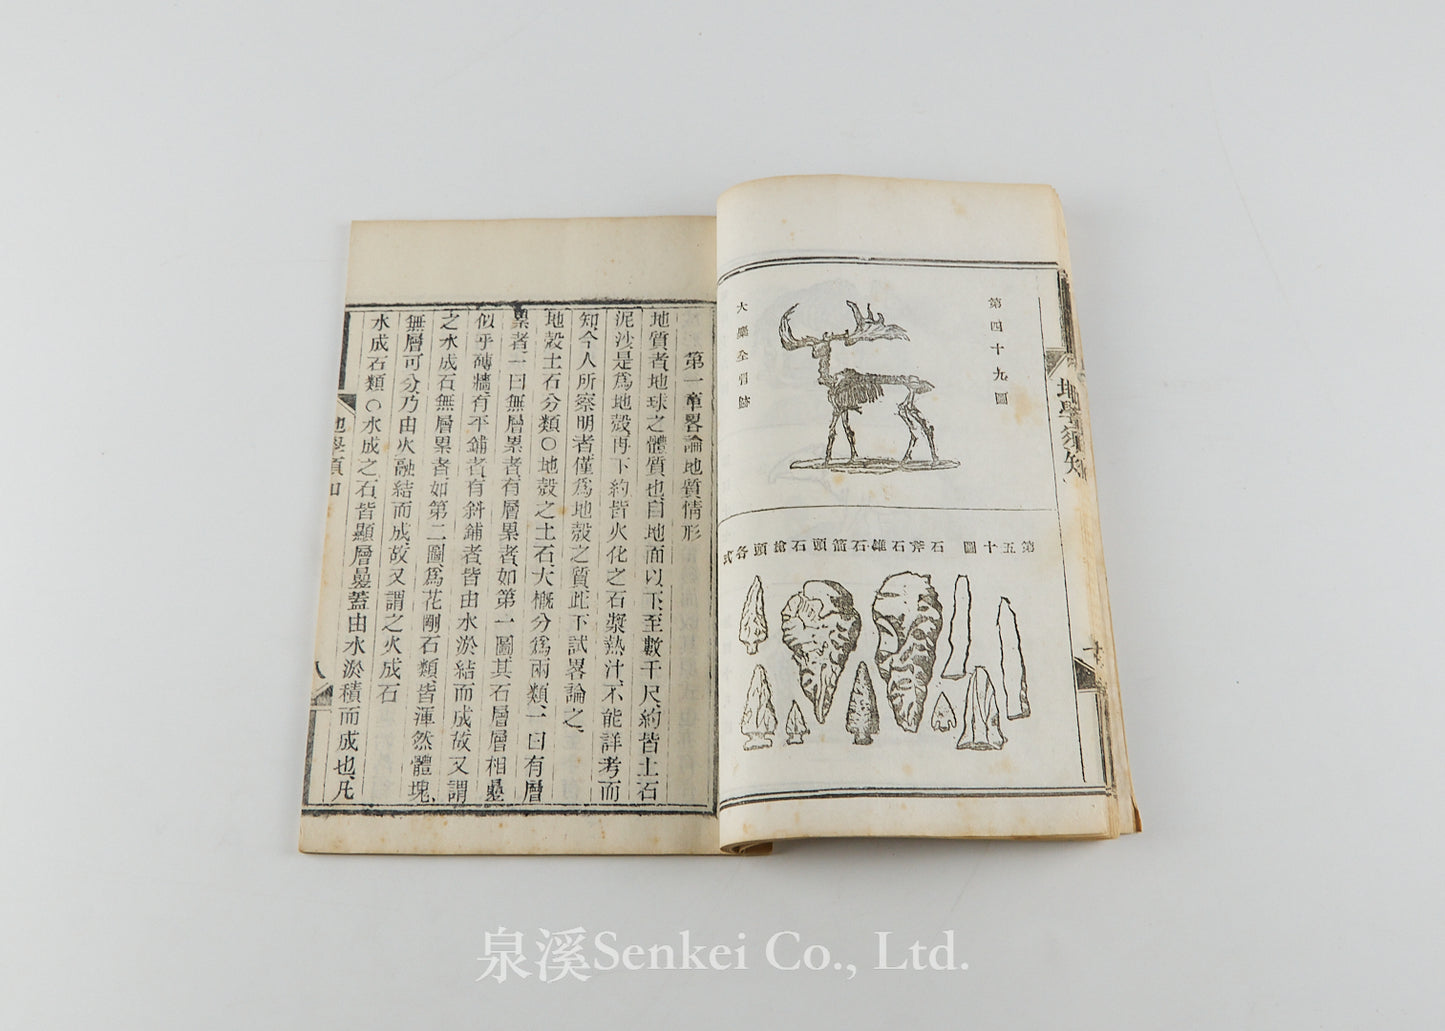 第四十九圖
大麋全骨跡
第五十圖 石斧石錐石箭頭石槍頭各式
地學須知
第一章畧論地質情形
地質者、地球之體質也、自地面以下、至數千尺、約皆土石
泥沙、是爲地殼、再下約皆火化之石漿熱汁、不能詳考而
知、今人所察明者、僅爲地殼之質、此下試畧論之、
地殼土石分類○地殼之土石、大概分爲兩類、一曰有層
累者、一曰無層累者、有層累者、如第一圖、其石層層相疊、
似乎磚牆、有平鋪者、有斜鋪者、皆由水淤結而成、故又謂
之水成石、無層累者、如第二圖、爲花剛石類、皆渾然體塊、
無層可分、乃由火融結而成、故又謂之火成石、
水成石類○水成之石、皆顯層疊、蓋由水淤積而成也、凡
地學須知
八
泉溪Senkei Co., Ltd.